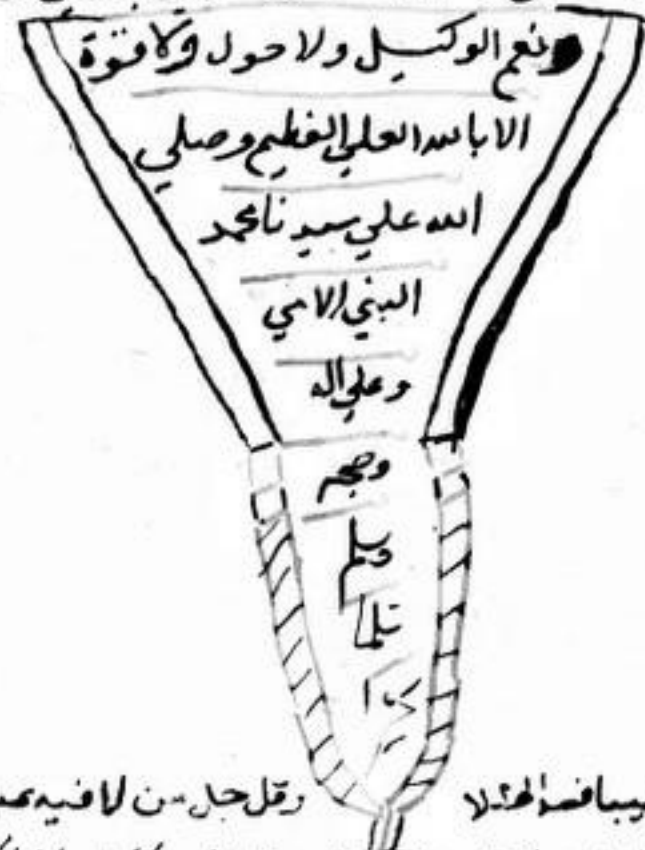 ونعم الوكيل ولا حول ولا قوة
الا بالله العلي العظيم وصلي
الله علي سيدنا محمد
النبي الامي
وعلي اله
وصحبه
وسلم
تسليما
كثيرا
وقل جل من لا فيه